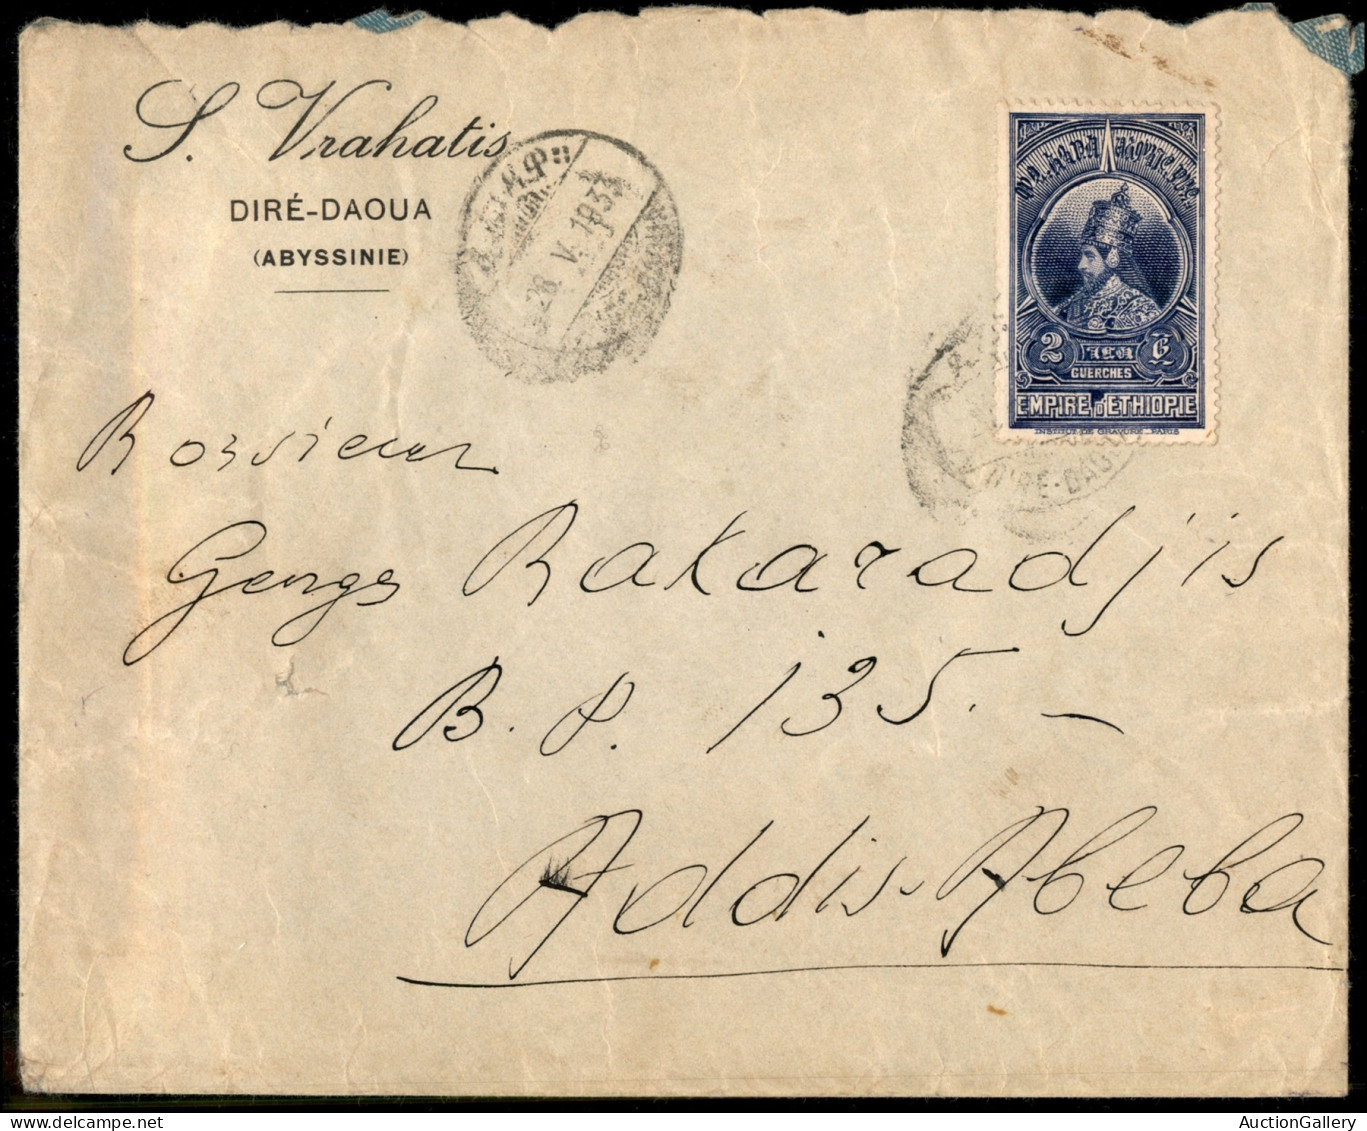 S. Vrahatis
DIRÉ-DAOUA
(ABYSSINIE)
28 V. 1933
2
GUERCHES
EMPIRE D'ETHIOPIE
INSTITUT DE GRAVURE PARIS
DIRE-DAOUA
Monsieur
Georges Rakaradjis
B. P. 135. —
Addis-Abeba
AuctionGallery